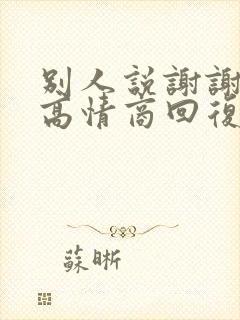 别人説謝謝
高情商回復
蘇晣